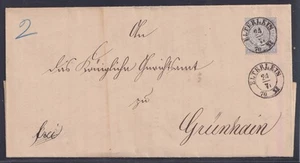 2
An
das Königliche Gerichtsamt
zu
Grünhain
frei
ELTERLEIN
24
ELTERLEIN
24